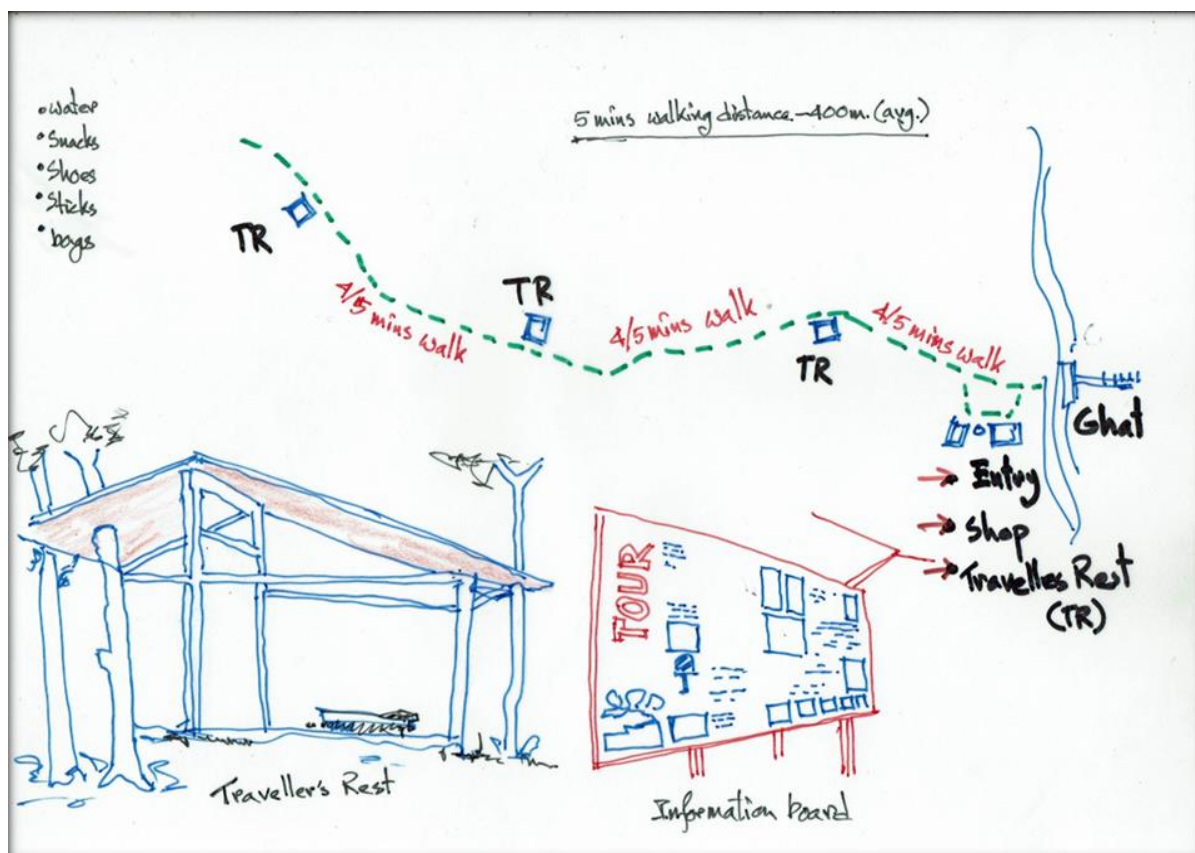 • water
• Snacks
• Shoes
• Sticks
• bags
5 mins walking distance - 400m. (avg.)
TR
TR
TR
4/5 mins walk
4/5 mins walk
4/5 mins walk
Ghat
Entry
Shop
Travelles Rest
(TR)
TOUR
Traveller's Rest
Information board